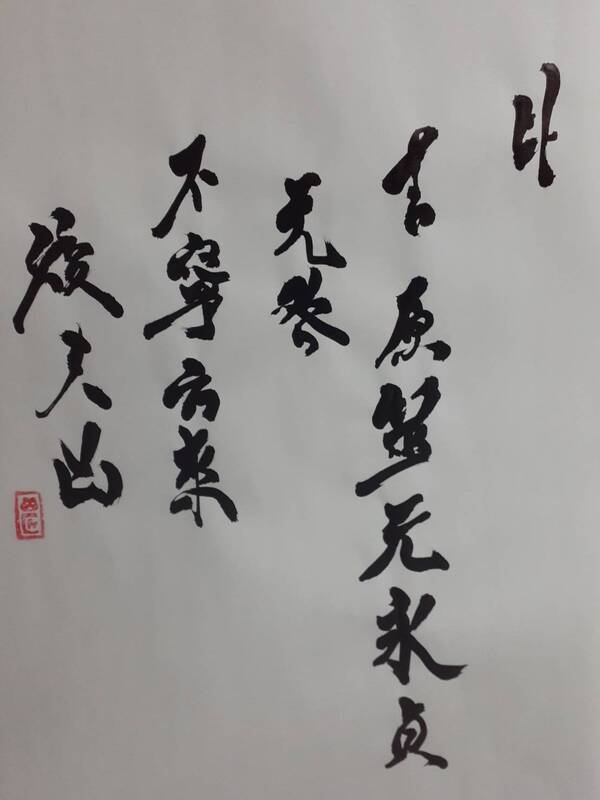 比
吉 原筮元永贞
无咎
不寧方来
後夫凶